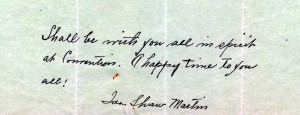 Shall be with you all in spirit
at Convention. A happy time to you
all!
Shaw Martin